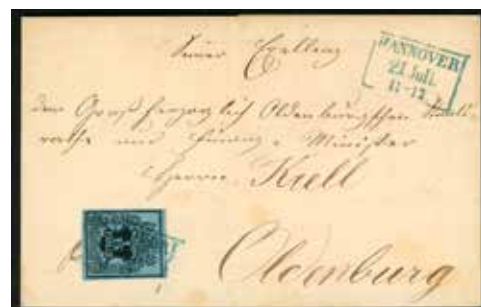 Seiner Exellenz
HANNOVER
21 Juli
11-12
den Großherzoglich Oldenburgschen
rathe und Finanz-Minister
Herrn Krell
Oldenburg